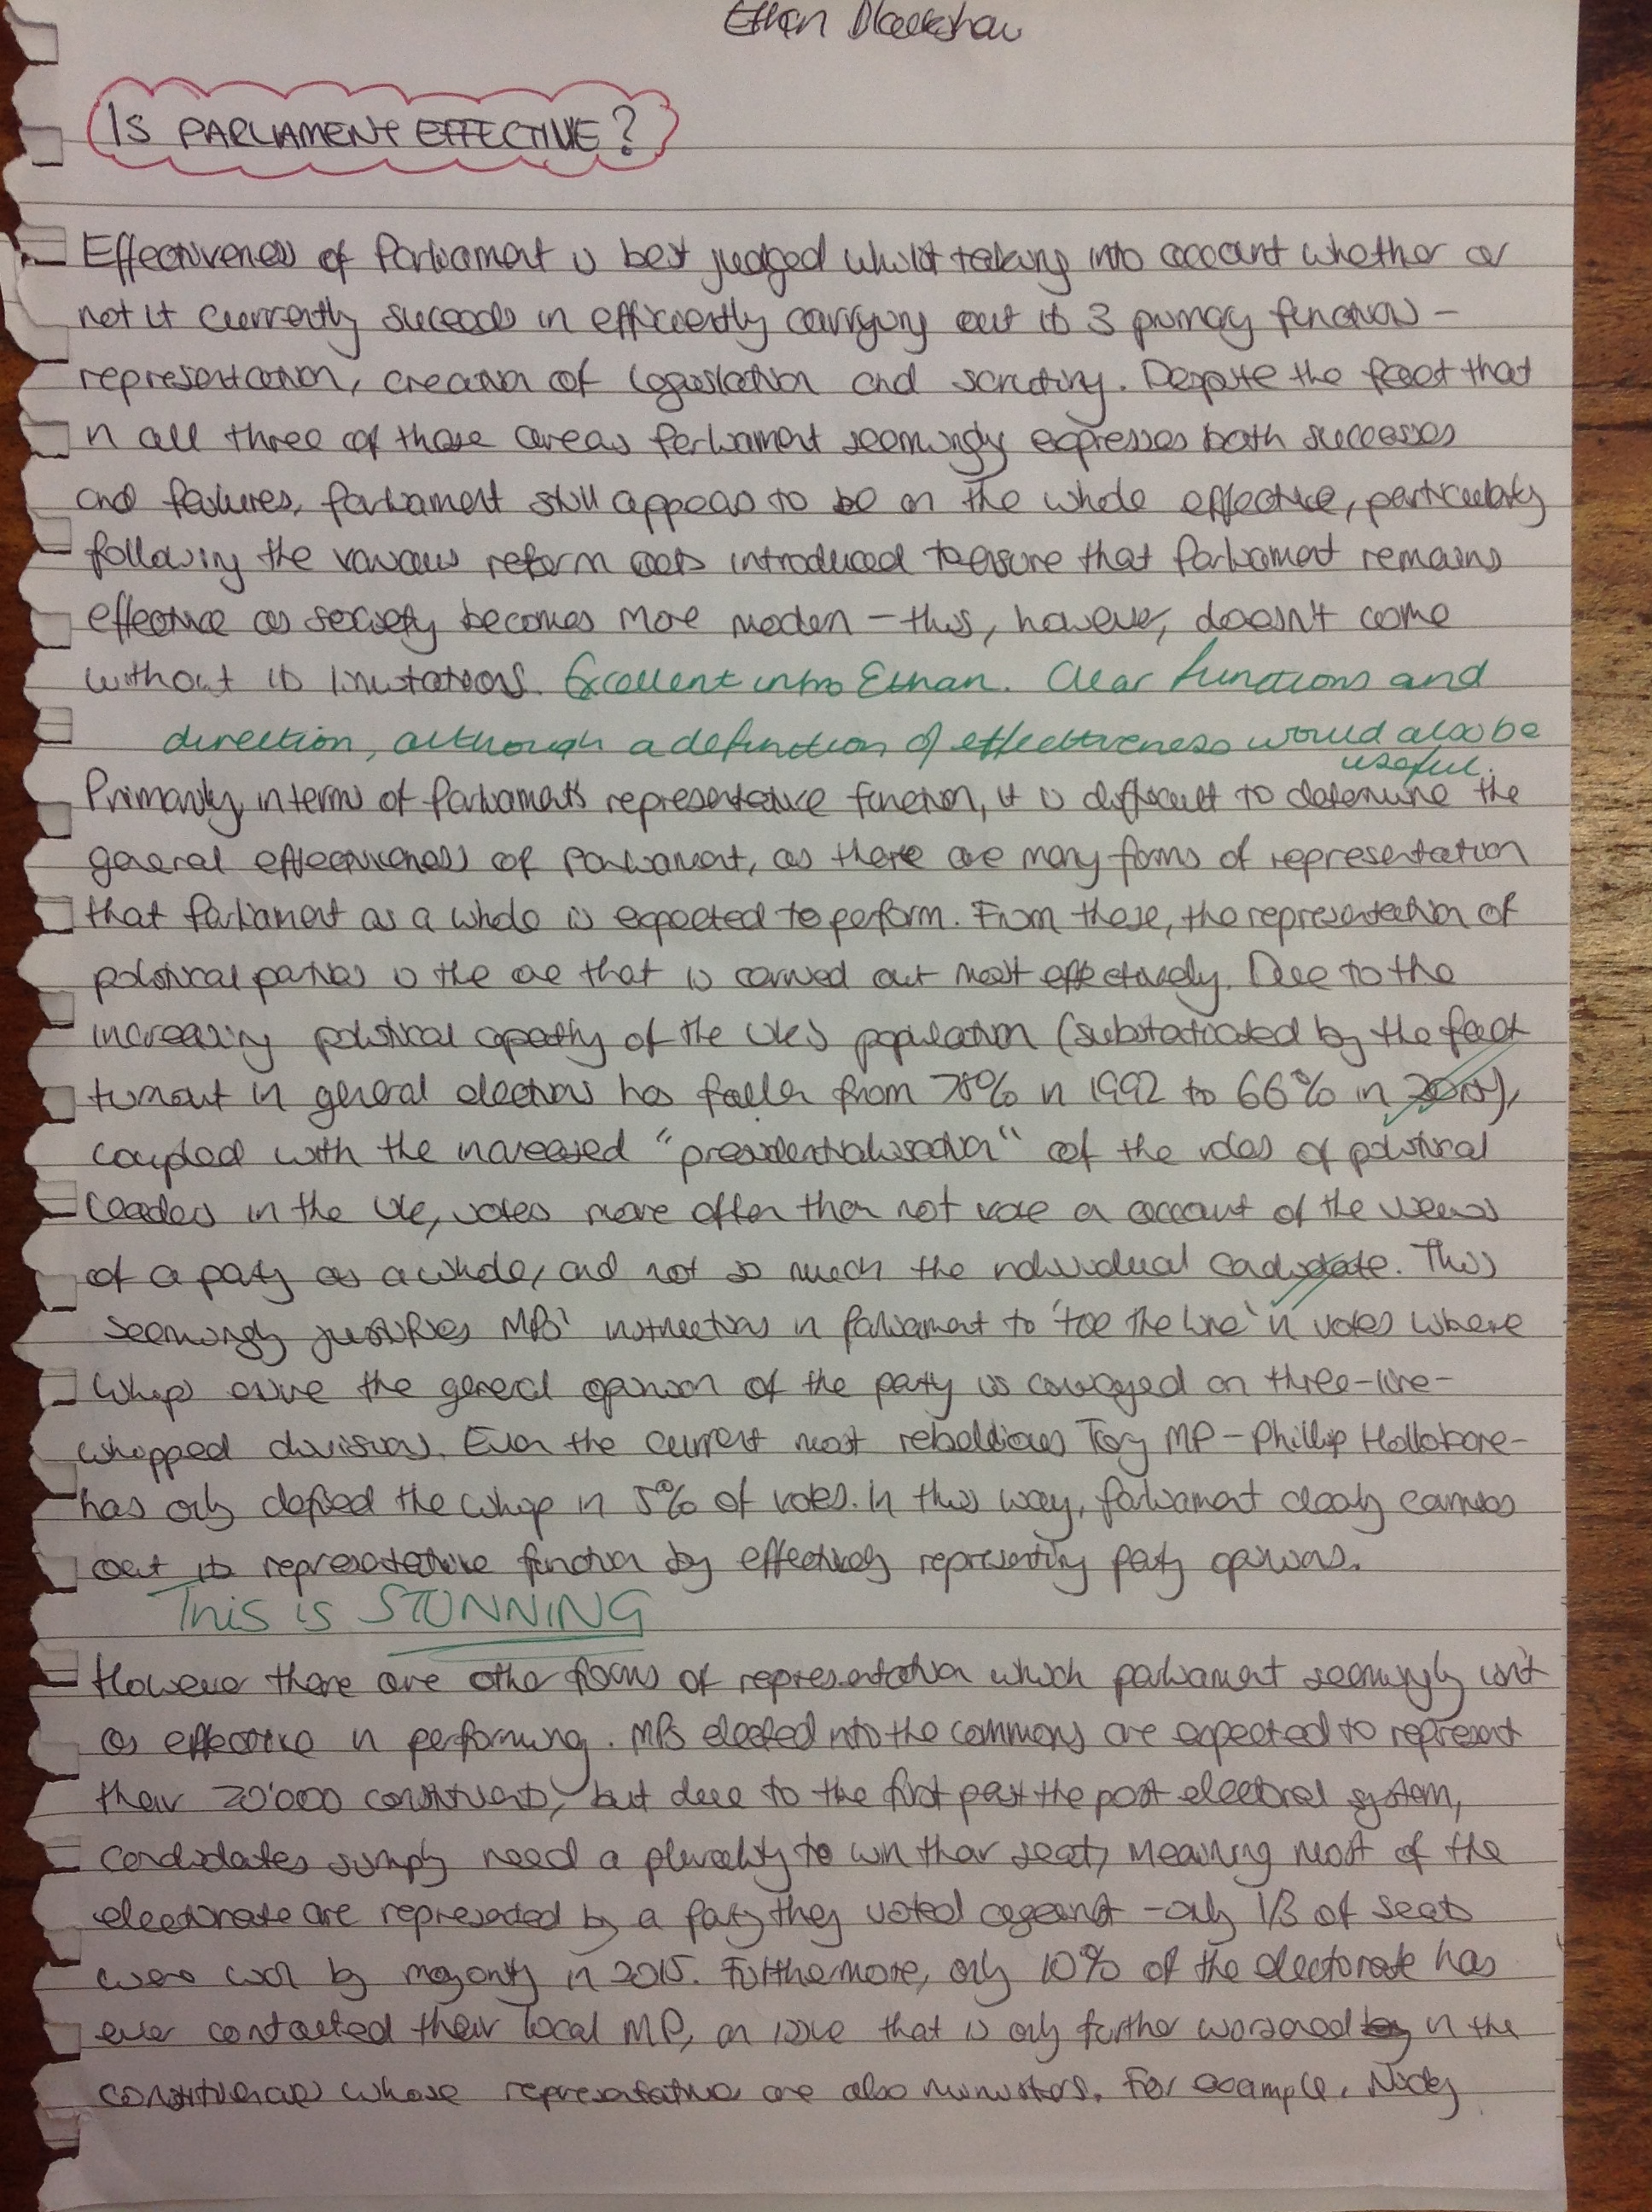 Ethan Blackshaw
IS PARLIAMENT EFFECTIVE?
Effectiveness of Parliament is best judged whilst taking into account whether or
not it currently succeeds in efficiently carrying out its 3 primary functions -
representation, creation of legislation and scrutiny. Despite the fact that
in all three of these areas Parliament seemingly expresses both successes
and failures, Parliament still appears to be on the whole effective, particularly
following the various reform acts introduced to ensure that Parliament remains
effective as society becomes more modern - this, however, doesn't come
without its limitations. Excellent intro Ethan. Clear functions and
direction, although a definition of effectiveness would also be
useful.
Primarily, in terms of Parliament's representative function, it is difficult to determine the
general effectiveness of Parliament, as there are many forms of representation
that Parliament as a whole is expected to perform. From these, the representation of
political parties is the one that is carried out most effectively. Due to the
increasing political apathy of the UK's population (substantiated by the fact
turnout in general elections has fallen from 78% in 1992 to 66% in 2015),
coupled with the increased "presidentialisation" of the roles of political
leaders in the UK, voters more often than not vote on account of the views
of a party as a whole, and not so much the individual candidate. This
seemingly justifies MPs' instructions in Parliament to 'toe the line' in votes where
whips ensure the general opinion of the party is conveyed on three-line-
whipped divisions. Even the current most rebellious Tory MP - Phillip Hollobone -
has only defied the whip in 5% of votes. In this way, Parliament clearly carries
out its representative function by effectively representing party opinions.
This is STUNNING
However there are other forms of representation which parliament seemingly isn't
as effective in performing. MPs elected into the commons are expected to represent
their 70'000 constituents, but due to the first past the post electoral system,
candidates simply need a plurality to win their seat, meaning most of the
electorate are represented by a party they voted against - only 1/3 of seats
were won by majority in 2015. Furthermore, only 10% of the electorate has
ever contacted their local MP, an issue that is only further worsened in the
constituencies whose representatives are also ministers. For example, Nicky